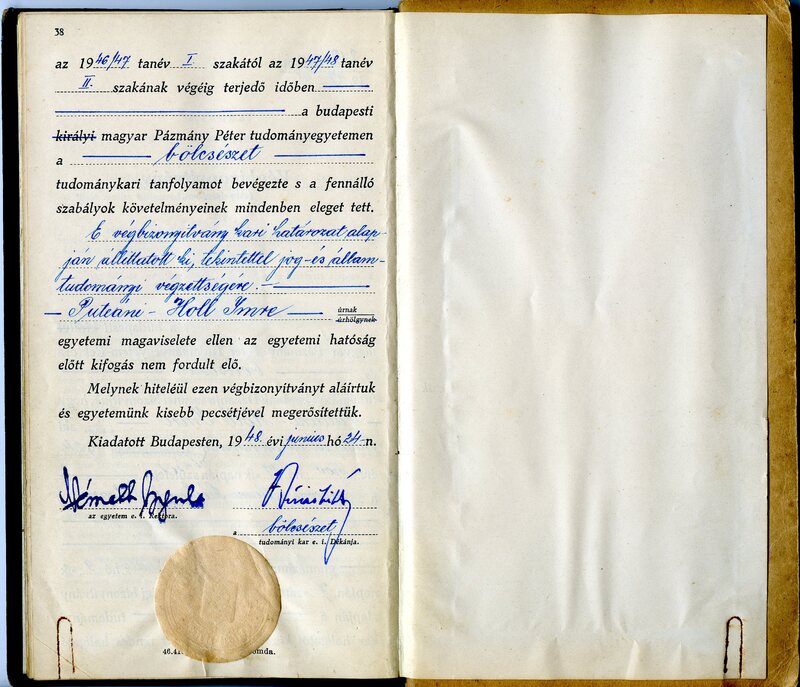 38
az 1946/47 tanév I szakától az 1947/48 tanév
II. szakának végéig terjedő időben
a budapesti
királyi magyar Pázmány Péter tudományegyetemen
a bölcsészet
tudománykari tanfolyamot bevégezte s a fennálló
szabályok követelményeinek mindenben eleget tett.
E végbizonyitvány kari határozat alap-
ján állittatott ki, tekintettel jog- és állam-
tudományi végzettségére.
Puteáni - Holl Imre úrnak
úrhölgynek
egyetemi magaviselete ellen az egyetemi hatóság
előtt kifogás nem fordult elő.
Melynek hiteléül ezen végbizonyítványt aláírtuk
és egyetemünk kisebb pecsétjével megerősítettük.
Kiadatott Budapesten, 1948. évi junius hó 24-n.
Németh Gyula
az egyetem e. i. Rektora.
a bölcsészet
tudományi kar e. i. Dékánja.